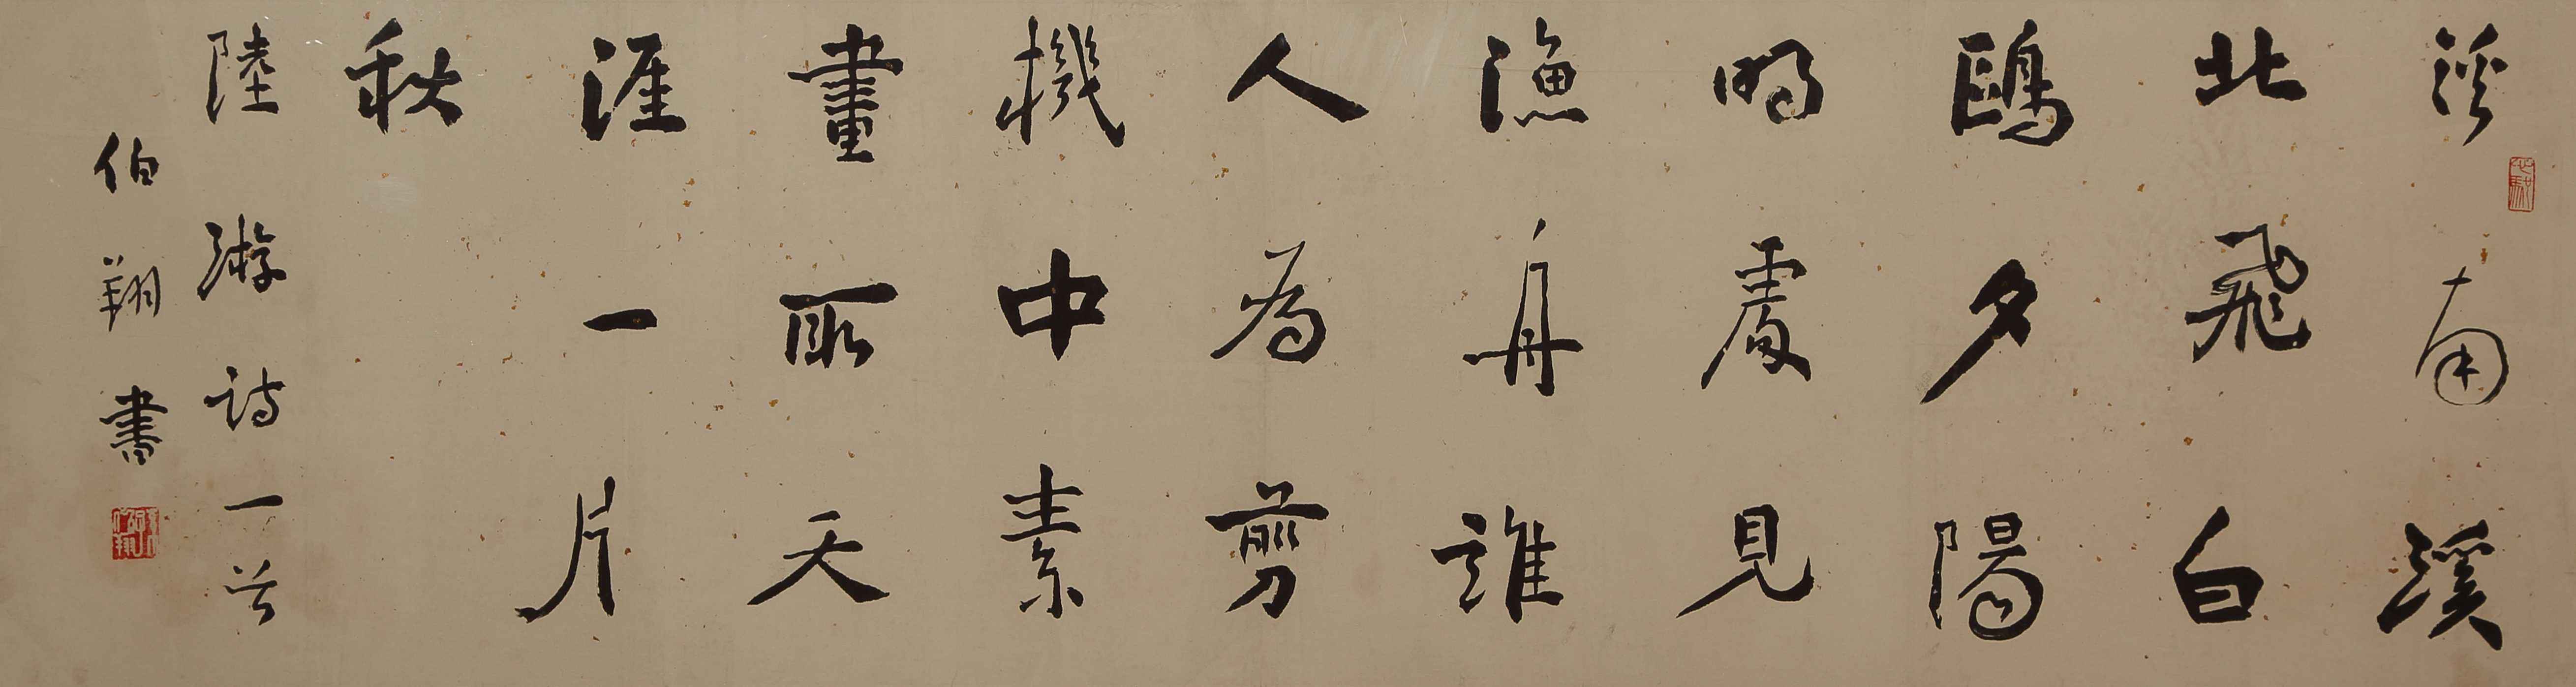 溪南溪
北飛白
鷗夕陽
明處見
漁舟誰
人為剪
機中素
畫取天
涯一片
秋
陸游詩一首
伯翔書